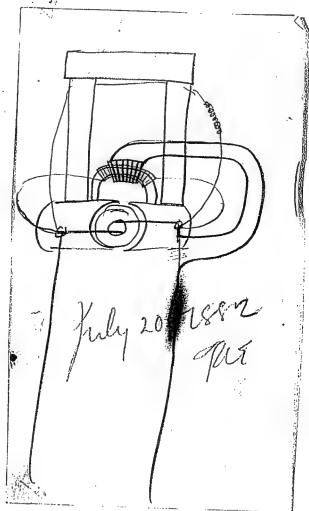 July 20 1882
TAE